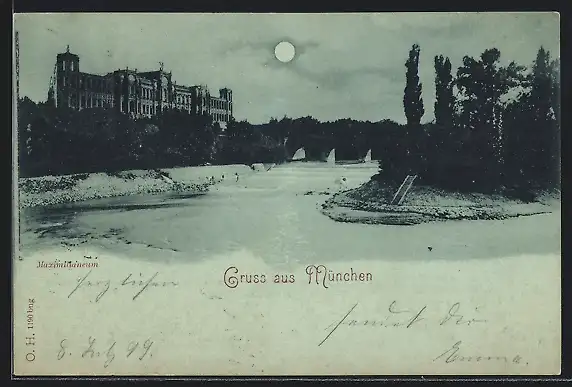 Maximilianeum
Gruss aus München
herzlichen
sendet dir
Emma.
8. Juli 99
O. H. 1190 bug